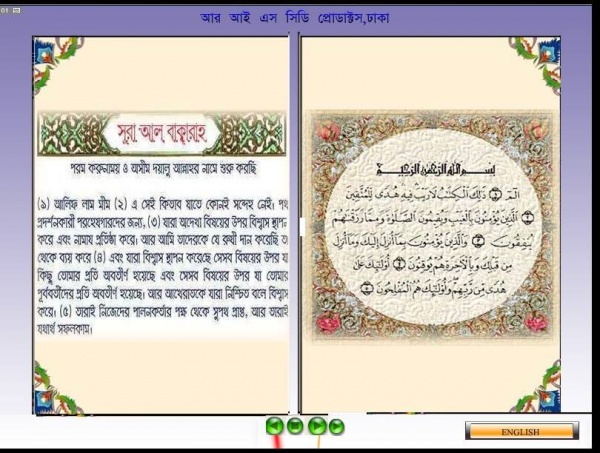 01
আর আই এস সিডি প্রোডাক্টস,ঢাকা
সূরা আল্ বাক্বারাহ
পরম করুনাময় ও অসীম দয়ালু আল্লাহর নামে শুরু করছি
(১) আলিফ লাম মীম (২) এ সেই কিতাব যাতে কোনই সন্দেহ নেই। পথ
প্রদর্শনকারী পরহেযগারদের জন্য, (৩) যারা অদেখা বিষয়ের উপর বিশ্বাস স্থাপন
করে এবং নামায প্রতিষ্ঠা করে। আর আমি তাদেরকে যে রুযী দান করেছি তা
থেকে ব্যয় করে (৪) এবং যারা বিশ্বাস স্থাপন করেছে সেসব বিষয়ের উপর যা
কিছু তোমার প্রতি অবতীর্ণ হয়েছে এবং সেসব বিষয়ের উপর যা তোমার
পূর্ববর্তীদের প্রতি অবতীর্ণ হয়েছে। আর আখেরাতকে যারা নিশ্চিত বলে বিশ্বাস
করে। (৫) তারাই নিজেদের পালনকর্তার পক্ষ থেকে সুপথ প্রাপ্ত, আর তারাই
যথার্থ সফলকাম।
بسم الله الرحمن الرحيم
الٓمٓ ۝١ ذَٰلِكَ ٱلْكِتَٰبُ لَا رَيْبَ فِيهِ هُدًى لِّلْمُتَّقِينَ
۝٢ ٱلَّذِينَ يُؤْمِنُونَ بِٱلْغَيْبِ وَيُقِيمُونَ ٱلصَّلَوٰةَ وَمِمَّا رَزَقْنَٰهُمْ
يُنفِقُونَ ۝٣ وَٱلَّذِينَ يُؤْمِنُونَ بِمَآ أُنزِلَ إِلَيْكَ وَمَآ أُنزِلَ
مِن قَبْلِكَ وَبِٱلْءَاخِرَةِ هُمْ يُوقِنُونَ ۝٤ أُو۟لَٰٓئِكَ عَلَىٰ
هُدًى مِّن رَّبِّهِمْ وَأُو۟لَٰٓئِكَ هُمُ ٱلْمُفْلِحُونَ ۝٥
ENGLISH